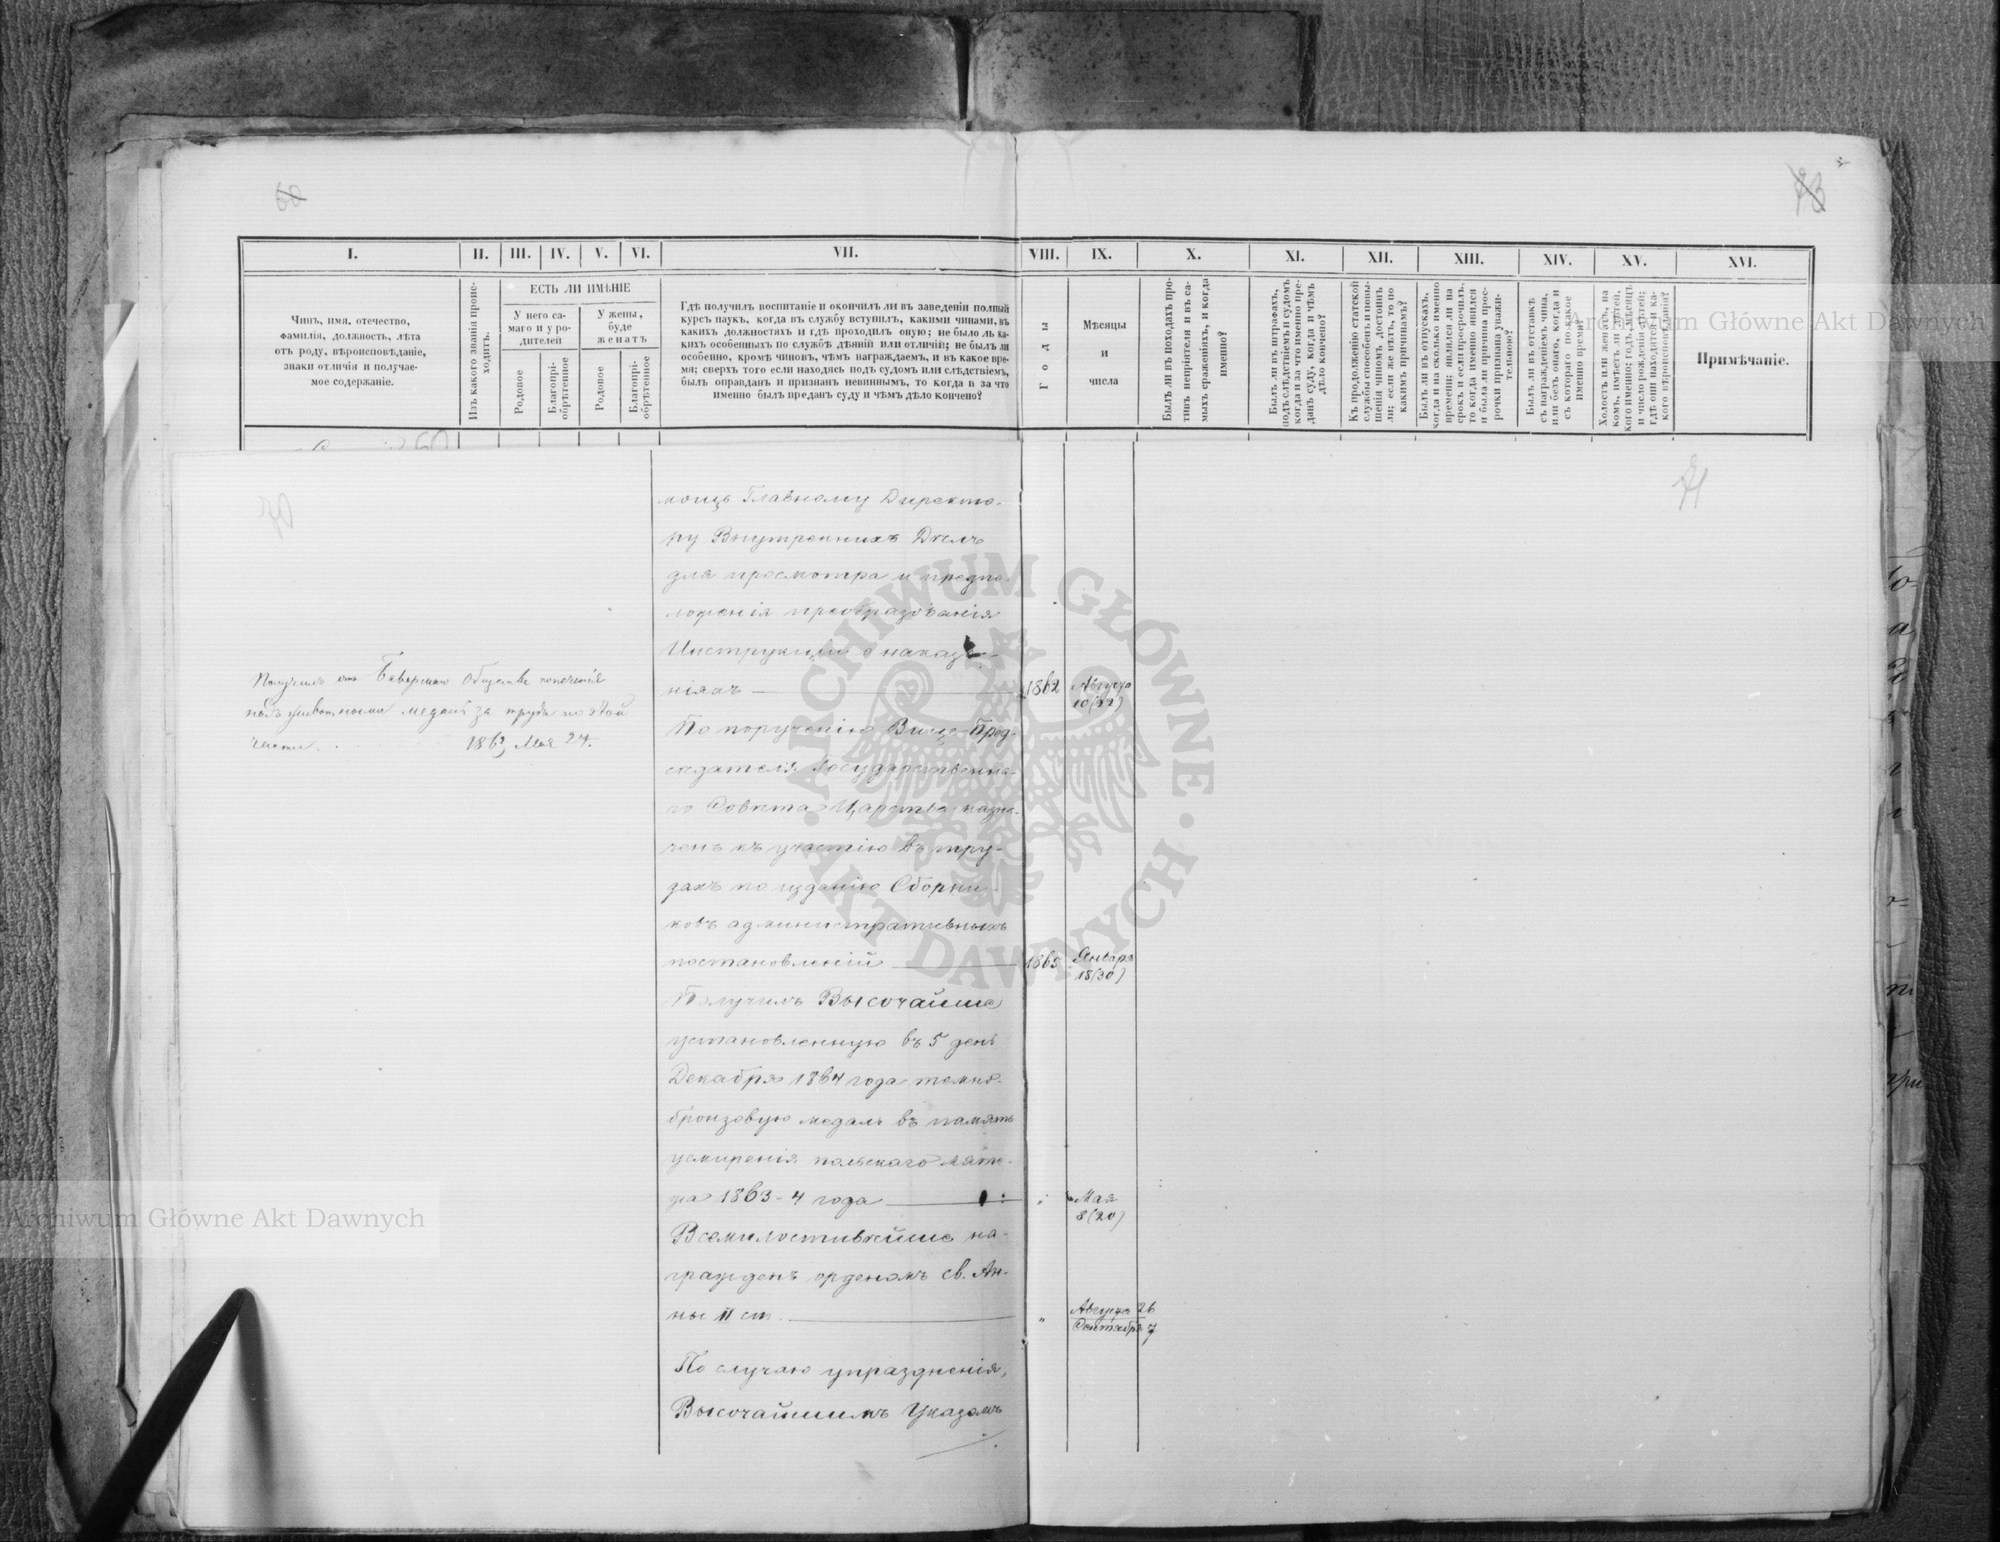 60
73
I. II. III. IV. V. VI. VII. VIII. IX. X. XI. XII. XIII. XIV. XV. XVI.
Чинъ, имя, отечество,
фамилія, должность, лѣта
отъ роду, вѣроисповѣданіе,
знаки отличія и получае-
мое содержаніе.
Изъ какого званія проис-
ходитъ.
ЕСТЬ ЛИ ИМѢНІЕ
У него са-
маго и у ро-
дителей
У жены,
буде
женатъ
Родовое
Благопрі-
обрѣтенное
Родовое
Благопрі-
обрѣтенное
Гдѣ получилъ воспитаніе и окончилъ ли въ заведеніи полный
курсъ наукъ, когда въ службу вступилъ, какими чинами, въ
какихъ должностяхъ и гдѣ проходилъ оную; не было ль ка-
кихъ особенныхъ по службѣ дѣяній или отличій; не былъ ли
особенно, кромѣ чиновъ, чѣмъ награждаемъ, и въ какое вре-
мя; сверхъ того если находясь подъ судомъ или слѣдствіемъ,
былъ оправданъ и признанъ невиннымъ, то когда и за что
именно былъ преданъ суду и чѣмъ дѣло кончено?
Годы
Мѣсяцы
и
числа
Былъ ли въ походахъ про-
тивъ непріятеля и въ са-
мыхъ сраженіяхъ, и когда
именно?
Былъ ли въ штрафахъ,
подъ слѣдствіемъ и судомъ
когда и за что именно пре-
данъ суду, когда и чѣмъ
дѣло кончено?
Къ продолженію статской
службы способенъ и повы-
шенія чиномъ достоинъ
ли; если же нѣтъ, то по
какимъ причинамъ?
Былъ ли въ отпускахъ,
когда и на сколько именно
времени; являлся ли на
срокъ и если просрочилъ,
то когда именно явился
и была ли причина прос-
рочки признана уважи-
тельною?
Былъ ли въ отставкѣ
съ награжденіемъ чина,
или безъ онаго, когда и
съ котораго по какое
именно время?
Холостъ или женатъ, на
комъ, имѣетъ ли дѣтей,
кого именно; годъ, мѣсяцъ
и число рожденія дѣтей;
гдѣ они находятся и ка-
кого вѣроисповѣданія?
Примѣчаніе.
71
мощь Главному Директо-
ру Внутреннихъ Дѣлъ
для просмотра и предпо-
ложенія преобразованія
Инструкціи о наказа-
ніяхъ 1862 Августа
10(22)
Получилъ отъ Баварскаго Общества попеченія
надъ животными медаль за труды по этой
части. 1863 Мая 24.
По порученію Вице-Пред-
сѣдателя Государственна-
го Совѣта Царства, назна-
ченъ къ участію въ тру-
дахъ по изданію Сборни-
ковъ административныхъ
постановленій 1865 Января
18(30)
Получилъ Высочайше
установленную въ 5 день
Декабря 1864 года темно-
бронзовую медаль въ память
усмиренія польскаго мяте-
жа 1863-4 года " Мая
8(20)
Всемилостивѣйше на-
гражденъ орденомъ св. Ан-
ны II ст. " Августа 26
Сентября 7
По случаю упраздненія,
Высочайшимъ Указомъ
Archiwum Główne Akt Dawnych
Archiwum Główne Akt Dawnych
ARCHIWUM GŁÓWNE
AKT DAWNYCH